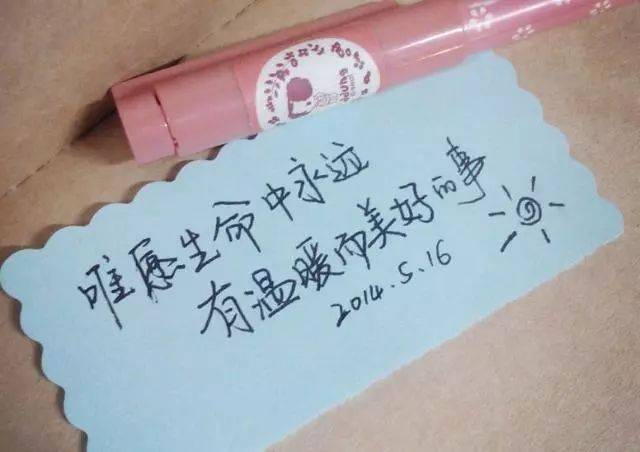 唯愿生命中永远
有温暖而美好的事
2014.5.16